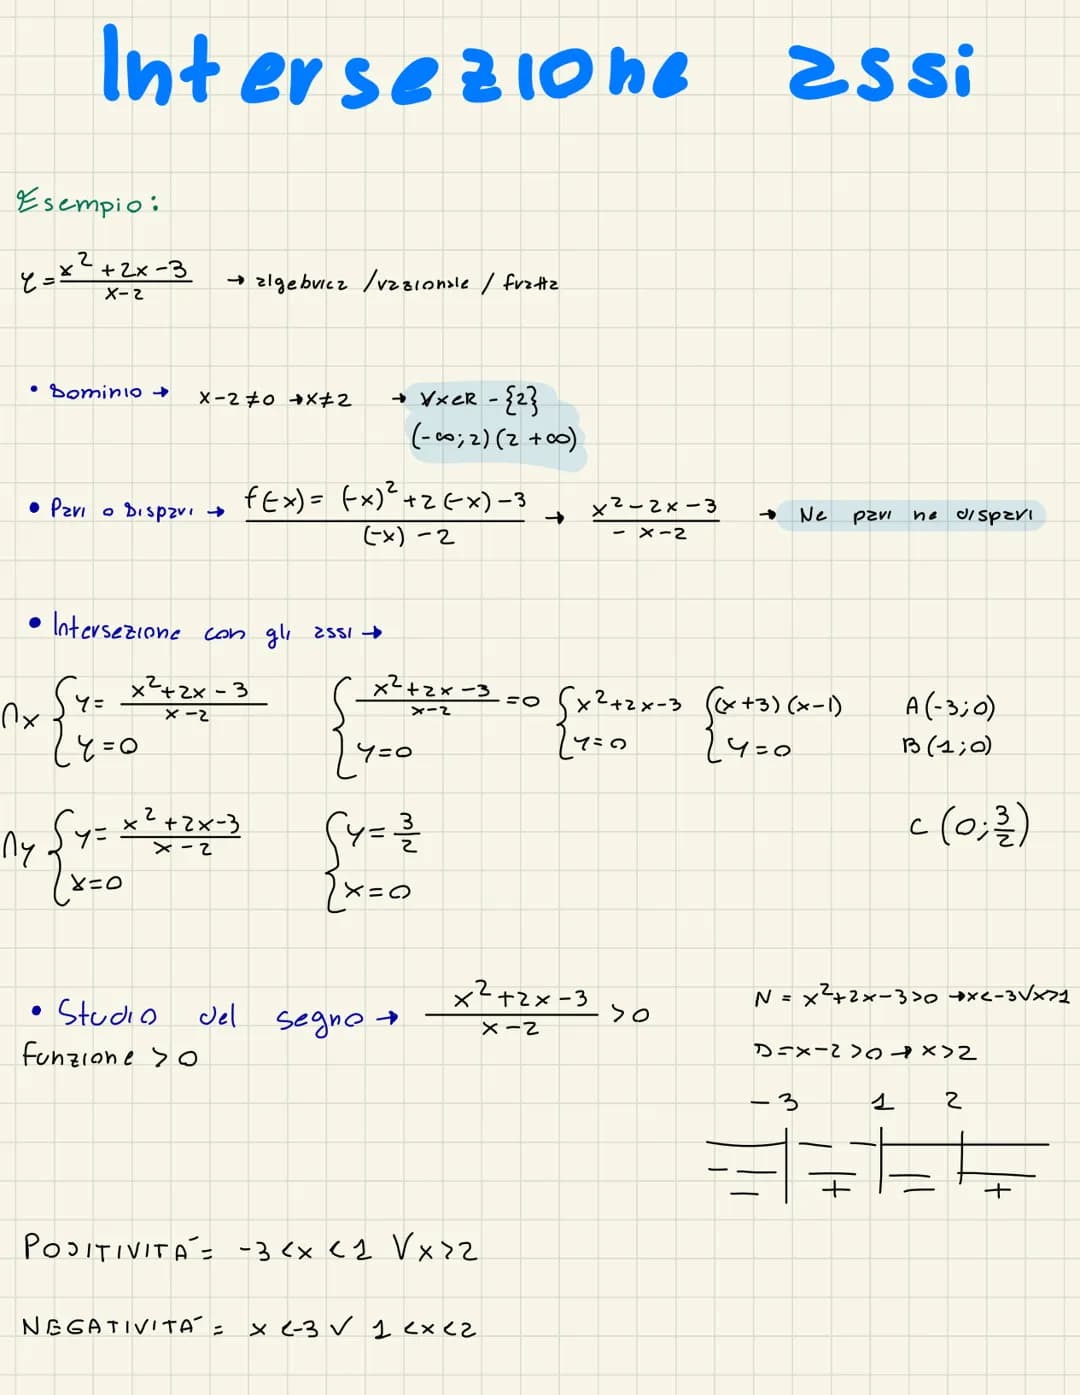 Intersezione assi
Esempio:
y = (x² + 2x - 3)/(x - 2) → algebrica / razionale / fratta
• Dominio → x - 2 ≠ 0 → x ≠ 2 → ∀x∈R - {2}
(-∞; 2) (2 +∞)
• Pari o Dispari → f(-x) = ((-x)² + 2(-x) - 3)/((-x) - 2) → (x² - 2x - 3)/(- x - 2) → Ne pari ne dispari
• Intersezione con gli assi →
∩x { y = (x² + 2x - 3)/(x - 2) { (x² + 2x - 3)/(x - 2) = 0 { x² + 2x - 3 { (x + 3)(x - 1) A(-3; 0)
y = 0 y = 0 y = 0 y = 0 B(1; 0)
∩y { y = (x² + 2x - 3)/(x - 2) { y = 3/2 C(0; 3/2)
x = 0 x = 0
• Studio del segno → (x² + 2x - 3)/(x - 2) > 0 N = x² + 2x - 3 > 0 → x < -3 ∨ x > 1
funzione > 0 D = x - 2 > 0 → x > 2
-3 1 2
- + - +
POSITIVITÁ = -3 < x < 1 ∨ x > 2
NEGATIVITÁ = x < -3 ∨ 1 < x < 2